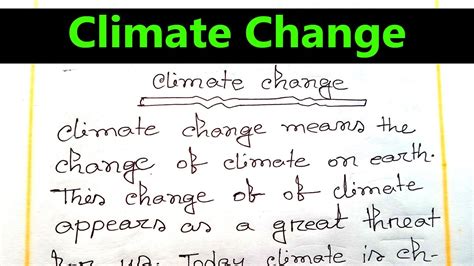 Climate Change
climate change
climate change means the
change of climate on earth.
This change of of climate
appears as a great threat
for us. Today climate is ch-